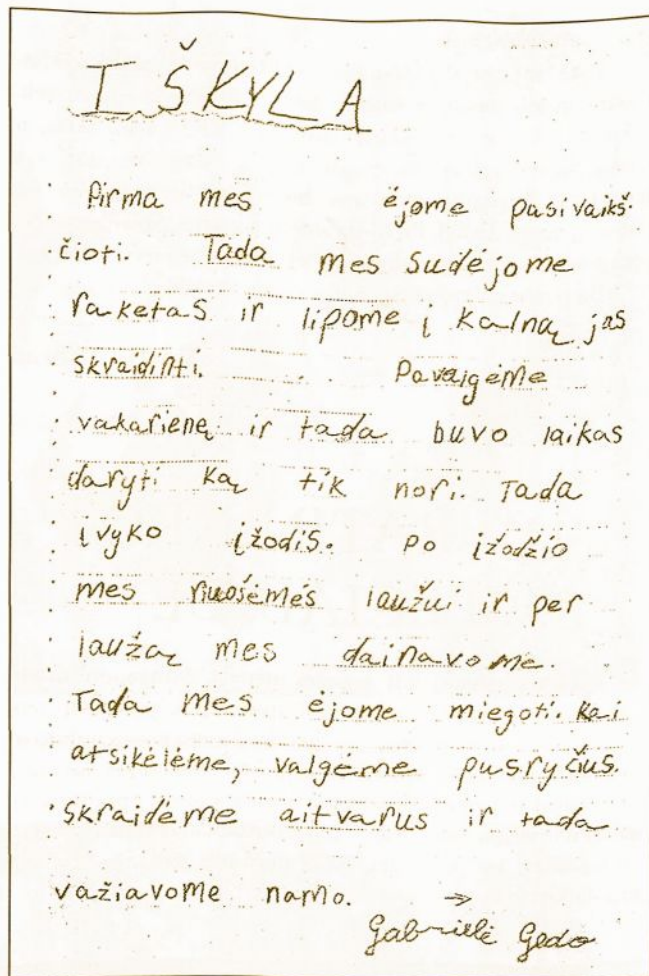 IŠKYLA
Pirma mes ėjome pasivaikš-
čioti. Tada mes sudėjome
raketas ir lipome į kalną jas
skraidinti. Pavalgėme
vakarienę ir tada buvo laikas
daryti ką tik nori. Tada
įvyko įžodis. Po įžodžio
mes ruošėmės laužui ir per
laužą mes dainavome.
Tada mes ėjome miegoti. Kai
atsikėlėme, valgėme pusryčius.
Skraidėme aitvarus ir tada
važiavome namo. →
Gabrielė Gedo